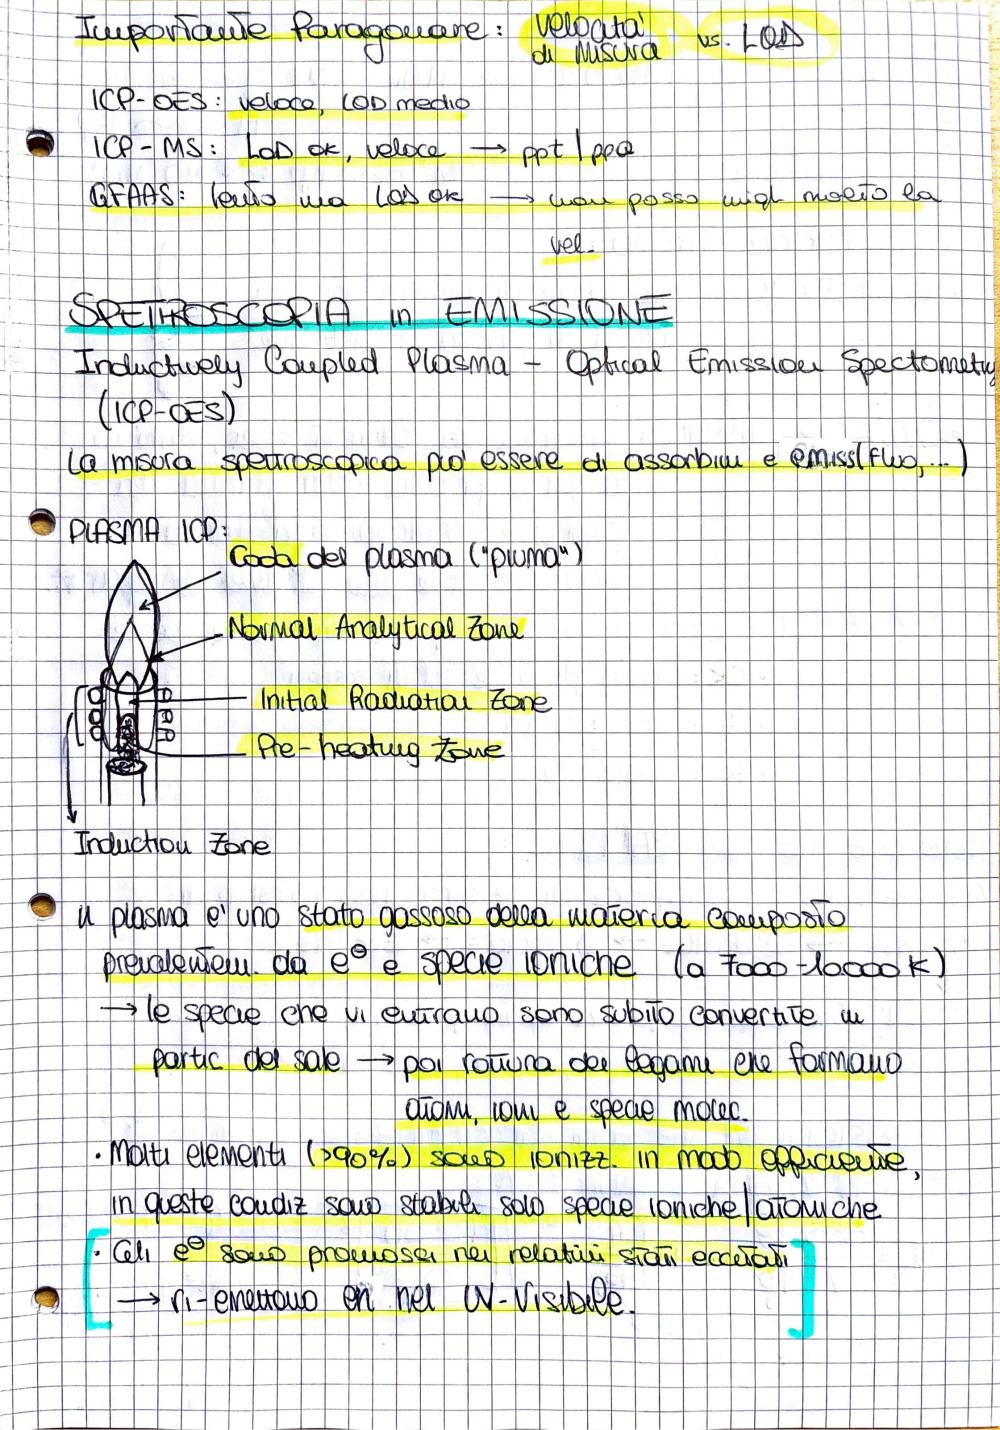 Importante Paragonare: velocità di misura vs. LOD
ICP-OES: veloce, LOD medio
ICP-MS: LOD ok, veloce → ppt/ppq
GFAAS: lento ma LOD ok → non posso migl molto la
vel.
SPETTROSCOPIA in EMISSIONE
Inductively Coupled Plasma - Optical Emission Spectometry
(ICP-OES)
La misura spettroscopica può essere di assorbim e emiss(fluo,...)
PLASMA ICP:
Coda del plasma ("piuma")
Normal Analytical Zone
Initial Radiation Zone
Pre-heating Zone
Induction Zone
il plasma e' uno stato gassoso della materia composto
prevalentem. da e⊖ e specie ioniche (a 7000-10000 K)
→ le specie che vi entrano sono subito convertite in
partic del sale → poi rottura dei legami che formano
atomi, ioni e specie molec.
· Molti elementi (>90%) sono ionizz. in modo efficiente,
in queste condiz sono stabili solo specie ioniche/atomiche
· Gli e⊖ sono promossi nei relativi stati eccitati
→ ri-emettono en nel UV-Visibile.